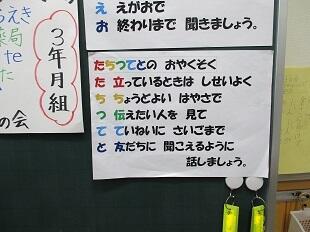 え えがおで
お 終わりまで 聞きましょう。
たちつてとの おやくそく
た 立っているときは しせいよく
ち ちょうどよい はやさで
つ 伝えたい人を 見て
て ていねいに さいごまで
と 友だちに 聞こえるように
話しましょう。
3年月組
の会
えき
薬局
te
た